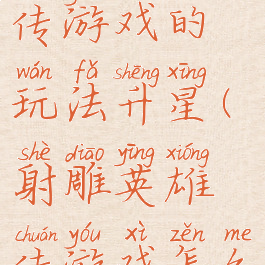 传游戏的
wán fǎ shēng xīng
玩法升星(
shè diāo yīng xióng
射雕英雄
chuán yóu xì zěn me
传游戏怎么